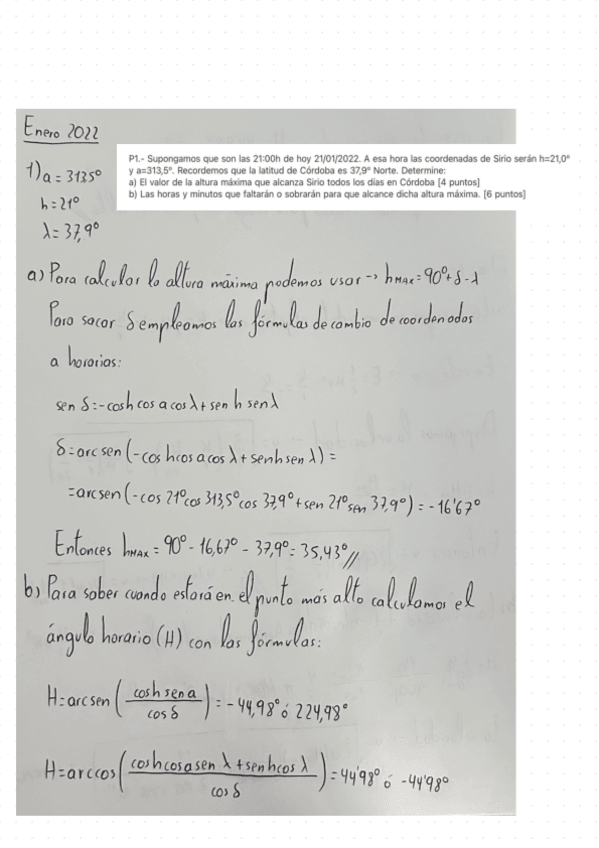 Enero 2022
P1.- Supongamos que son las 21:00h de hoy 21/01/2022. A esa hora las coordenadas de Sirio serán h=21,0º
y a=313,5º. Recordemos que la latitud de Córdoba es 37,9º Norte. Determine:
a) El valor de la altura máxima que alcanza Sirio todos los días en Córdoba [4 puntos]
b) Las horas y minutos que faltarán o sobrarán para que alcance dicha altura máxima. [6 puntos]
1) a = 313'5º
h = 21º
λ = 37,9º
a) Para calcular la altura máxima podemos usar -> hMAX = 90º + δ - λ
Para sacar δ empleamos las fórmulas de cambio de coordenadas
a horarias:
sen δ = -cos h cos a cos λ + sen h sen λ
δ = arc sen (-cos h cos a cos λ + sen h sen λ) =
= arc sen (-cos 21º cos 313,5º cos 37,9º + sen 21º sen 37,9º) = -16'67º
Entonces hMAX = 90º - 16,67º - 37,9º = 35,43º //
b) Para saber cuando estará en el punto más alto calculamos el
ángulo horario (H) con las fórmulas:
H = arc sen (cos h sen a / cos δ) = -44,98º ó 224,98º
H = arc cos (cos h cos a sen λ + sen h cos λ / cos δ) = 44'98º ó -44'98º